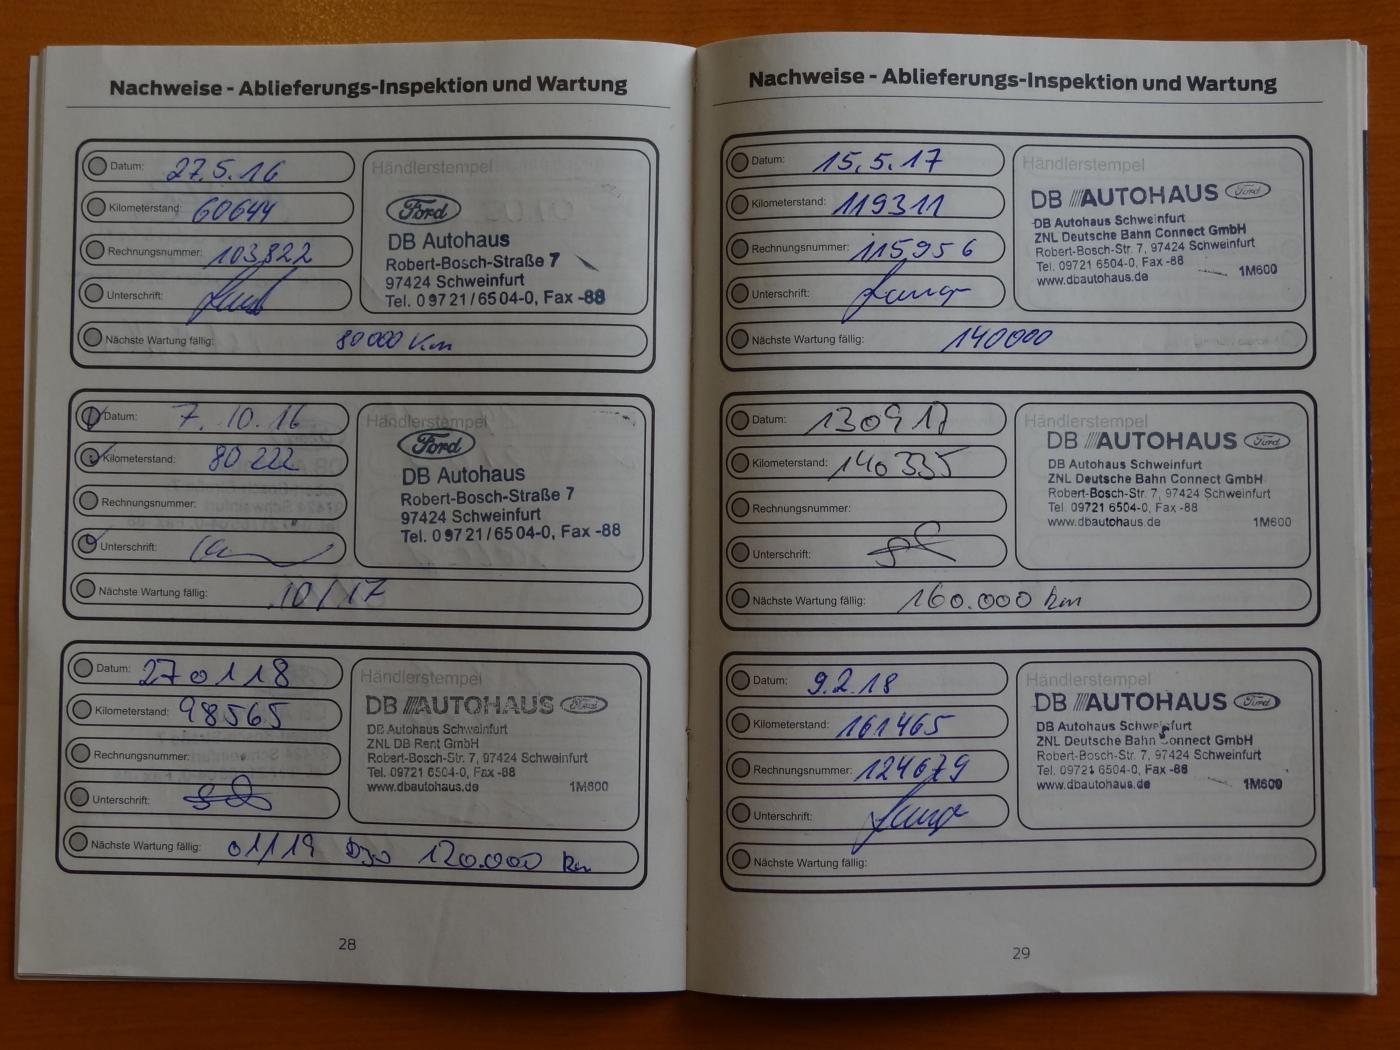 Nachweise - Ablieferungs-Inspektion und Wartung
Datum: 27.5.16
Kilometerstand: 60644
Rechnungsnummer: 103822
Unterschrift:
Nächste Wartung fällig: 80000 Km
Händlerstempel
Ford
DB Autohaus
Robert-Bosch-Straße 7
97424 Schweinfurt
Tel. 09721/6504-0, Fax -88
Datum: 7.10.16
Kilometerstand: 80222
Rechnungsnummer:
Unterschrift:
Nächste Wartung fällig: 10/17
Händlerstempel
Ford
DB Autohaus
Robert-Bosch-Straße 7
97424 Schweinfurt
Tel. 09721/6504-0, Fax -88
Datum: 270118
Kilometerstand: 98565
Rechnungsnummer:
Unterschrift:
Nächste Wartung fällig: 01/19 120.000 km
Händlerstempel
DB AUTOHAUS Ford
DB Autohaus Schweinfurt
ZNL DB Rent GmbH
Robert-Bosch-Str. 7, 97424 Schweinfurt
Tel. 09721 6504-0, Fax -88
www.dbautohaus.de 1M600
28
Nachweise - Ablieferungs-Inspektion und Wartung
Datum: 15.5.17
Kilometerstand: 119311
Rechnungsnummer: 115956
Unterschrift:
Nächste Wartung fällig: 140000
Händlerstempel
DB AUTOHAUS Ford
DB Autohaus Schweinfurt
ZNL Deutsche Bahn Connect GmbH
Robert-Bosch-Str. 7, 97424 Schweinfurt
Tel. 09721 6504-0, Fax -88
www.dbautohaus.de 1M600
Datum: 130917
Kilometerstand: 140335
Rechnungsnummer:
Unterschrift:
Nächste Wartung fällig: 160.000 km
Händlerstempel
DB AUTOHAUS Ford
DB Autohaus Schweinfurt
ZNL Deutsche Bahn Connect GmbH
Robert-Bosch-Str. 7, 97424 Schweinfurt
Tel. 09721 6504-0, Fax -88
www.dbautohaus.de 1M600
Datum: 9.2.18
Kilometerstand: 161465
Rechnungsnummer: 124679
Unterschrift:
Nächste Wartung fällig:
Händlerstempel
DB AUTOHAUS Ford
DB Autohaus Schweinfurt
ZNL Deutsche Bahn Connect GmbH
Robert-Bosch-Str. 7, 97424 Schweinfurt
Tel. 09721 6504-0, Fax -88
www.dbautohaus.de 1M600
29